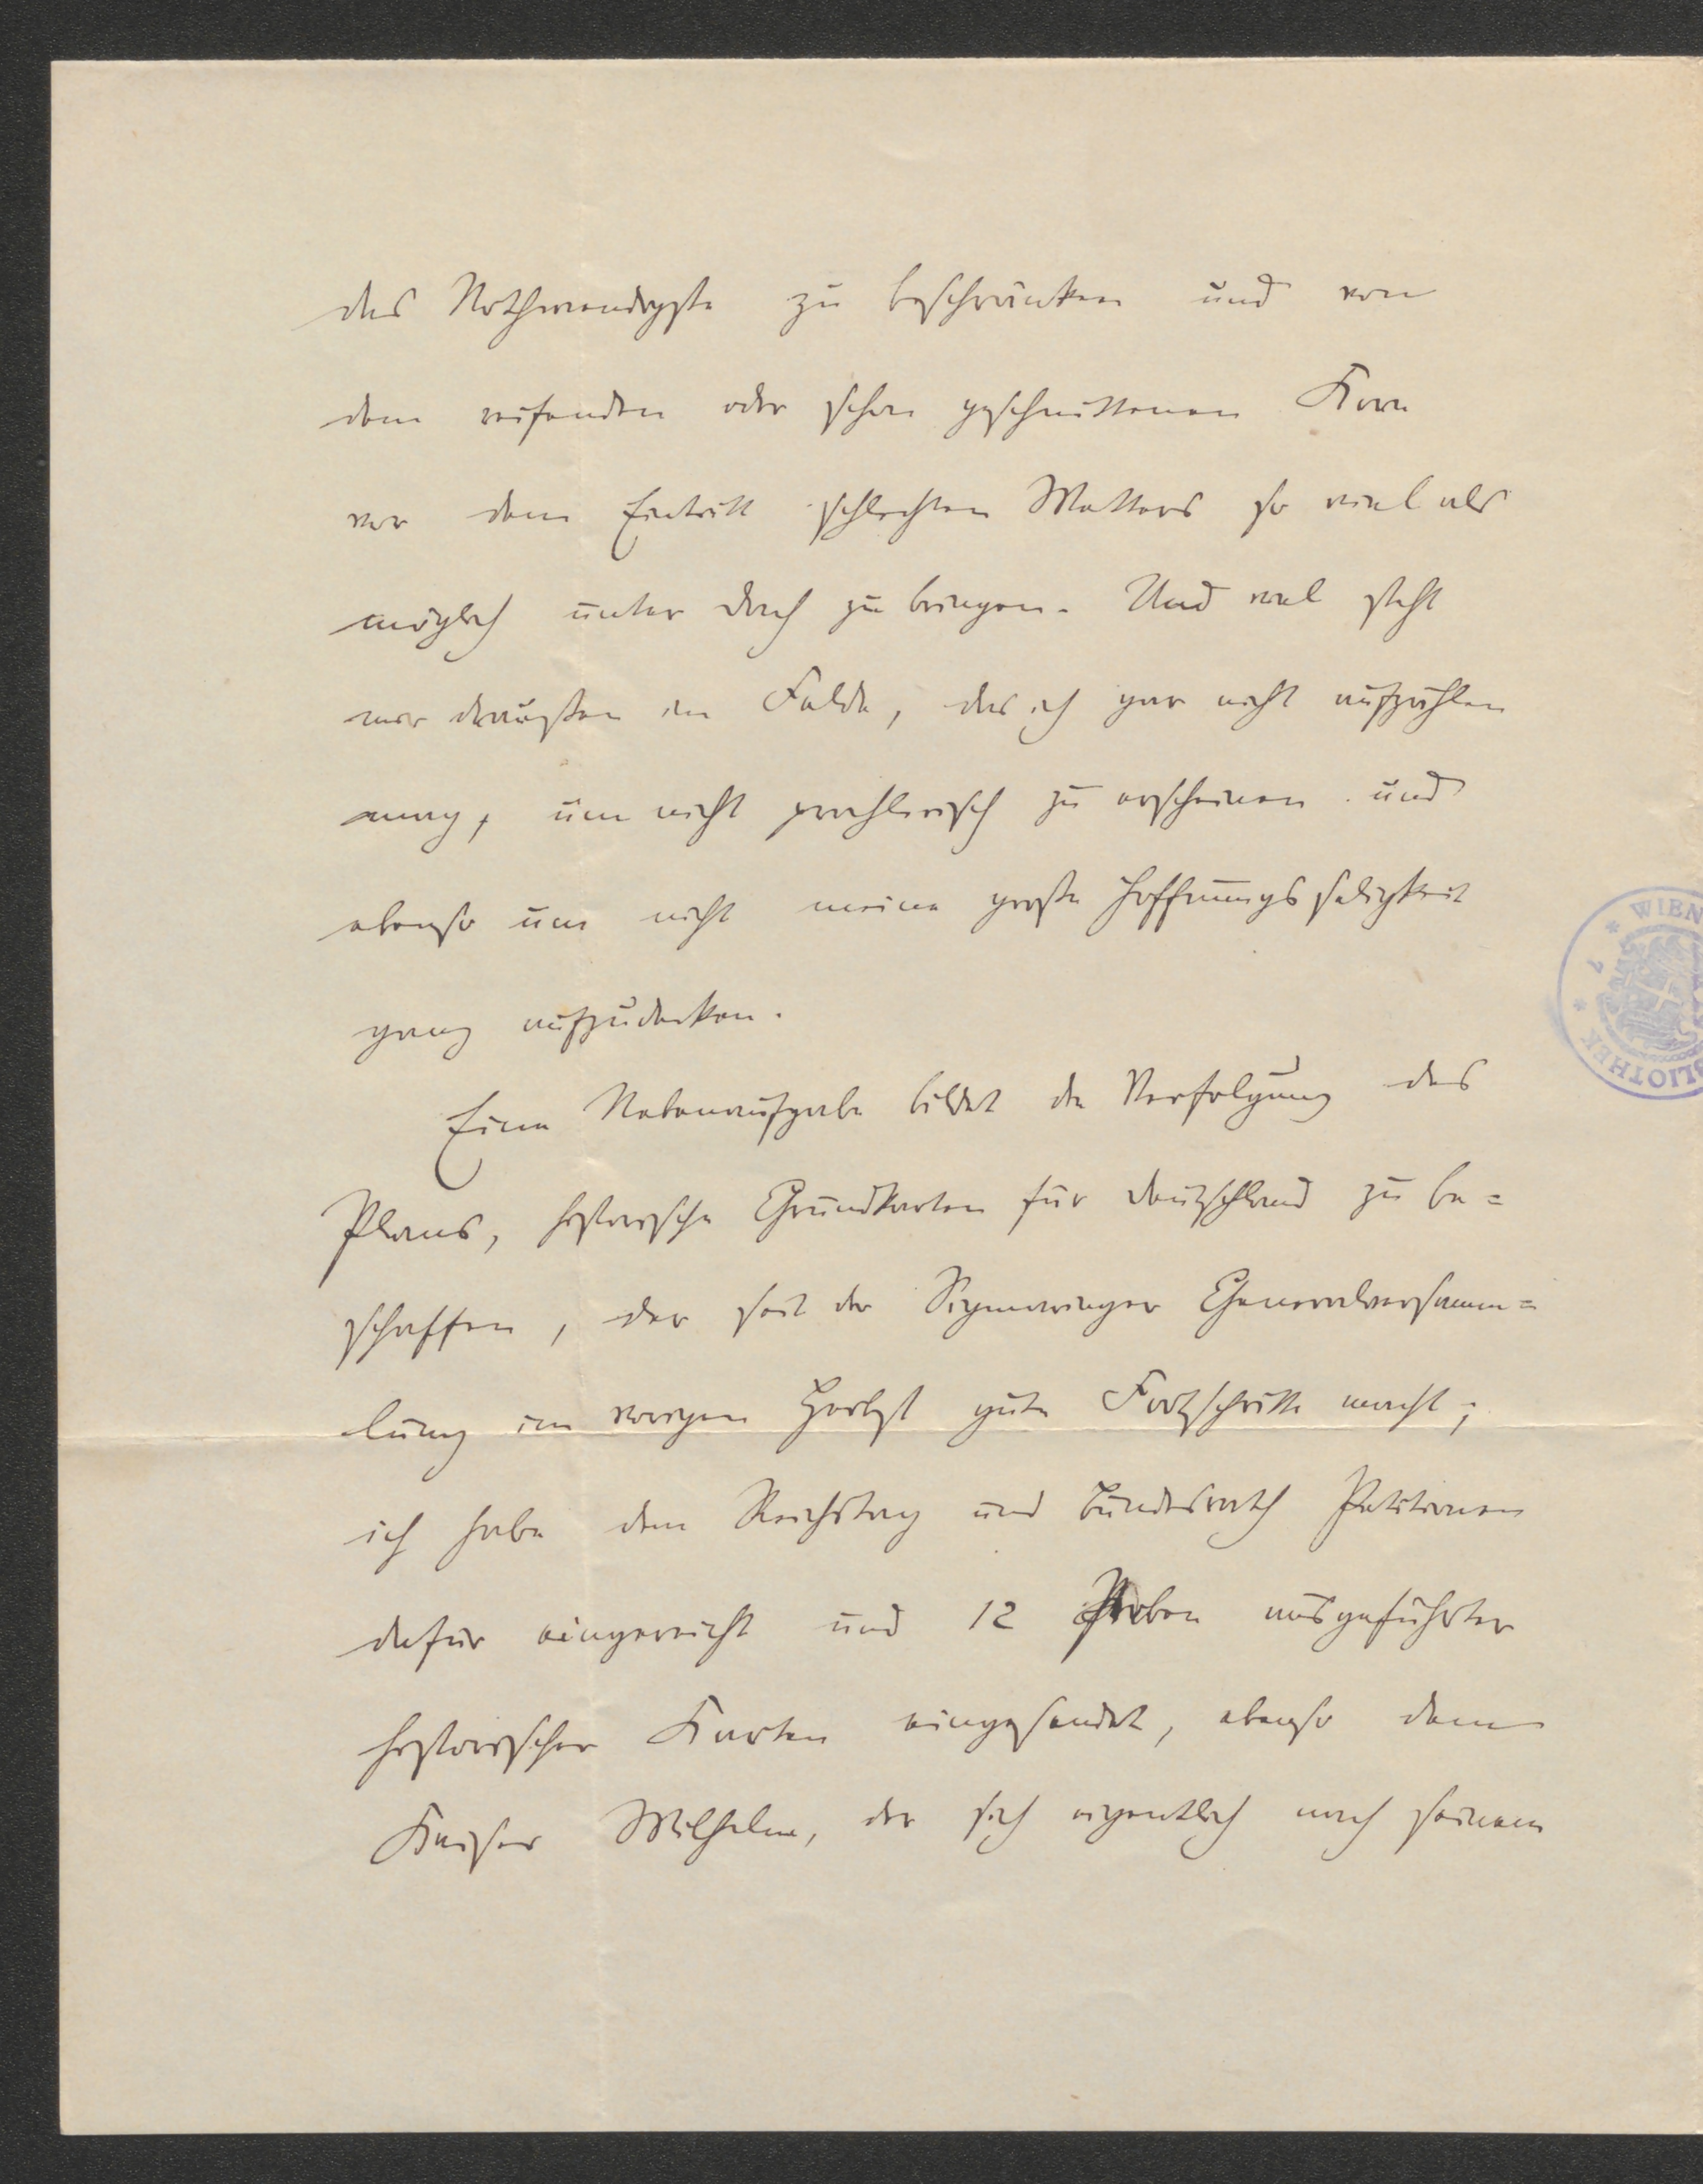 das Nothwendigste zu beschränken und von
dem reifenden oder schon geschnittenen Korn
vor dem Eintritt schlechten Wetters so viel als
möglich unter Dach zu bringen. Und viel steht
mir draußen im Felde, das ich gar nicht aufzählen
mag, um nicht prahlerisch zu erscheinen und
ebenso um nicht meine große Hoffnungsseligkeit
ganz aufzudecken.
Eine Nebenaufgabe bildet die Verfolgung des
Plans, historische Grundkarten für Deutschland zu be=
schaffen, der seit der Sigmaringer Generalversamm=
lung im vorigen Herbst gute Fortschritte macht;
ich habe dem Reichstag und Bundesrath Petitionen
dafür eingereicht und 12 Proben ausgeführter
historischer Karten eingesendet, ebenso dem
Kaiser Wilhelm, der sich eigentlich nach seinem
WIEN
BLIOTHEK